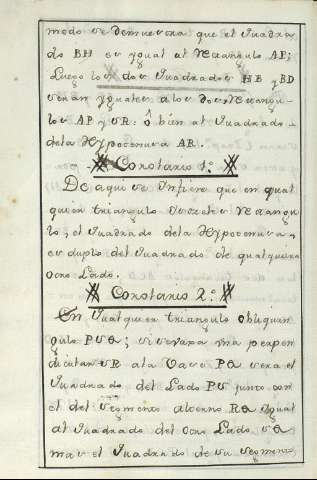 modo se Demuestra que el Quadra
do BH es ygual al Rexangulo AP;
Luego los dos Quadrados HB y BD
seran yguales alos dos Rexangu-
los AP y SR: ô bien al Quadrado
dela Hypotenusa AR.
Corolario 1º
De aqui se Infiere que en qual
quier triangulo Ysoceles Rexangu
lo, el Quadrado dela Hypotenusa,
es duplo del Quadrado de qualquiera
otro Lado.
Corolario 2º
En Qualquier triangulo obliquan
gulo PSQ; si se tira una perpen
dicular SR ala Vase PQ sera el
Quadrado del Lado PS junto con
el del segmento alterno RQ Ygual
al Quadrado del otro Lado SQ
mas el Quadrado de su segmento